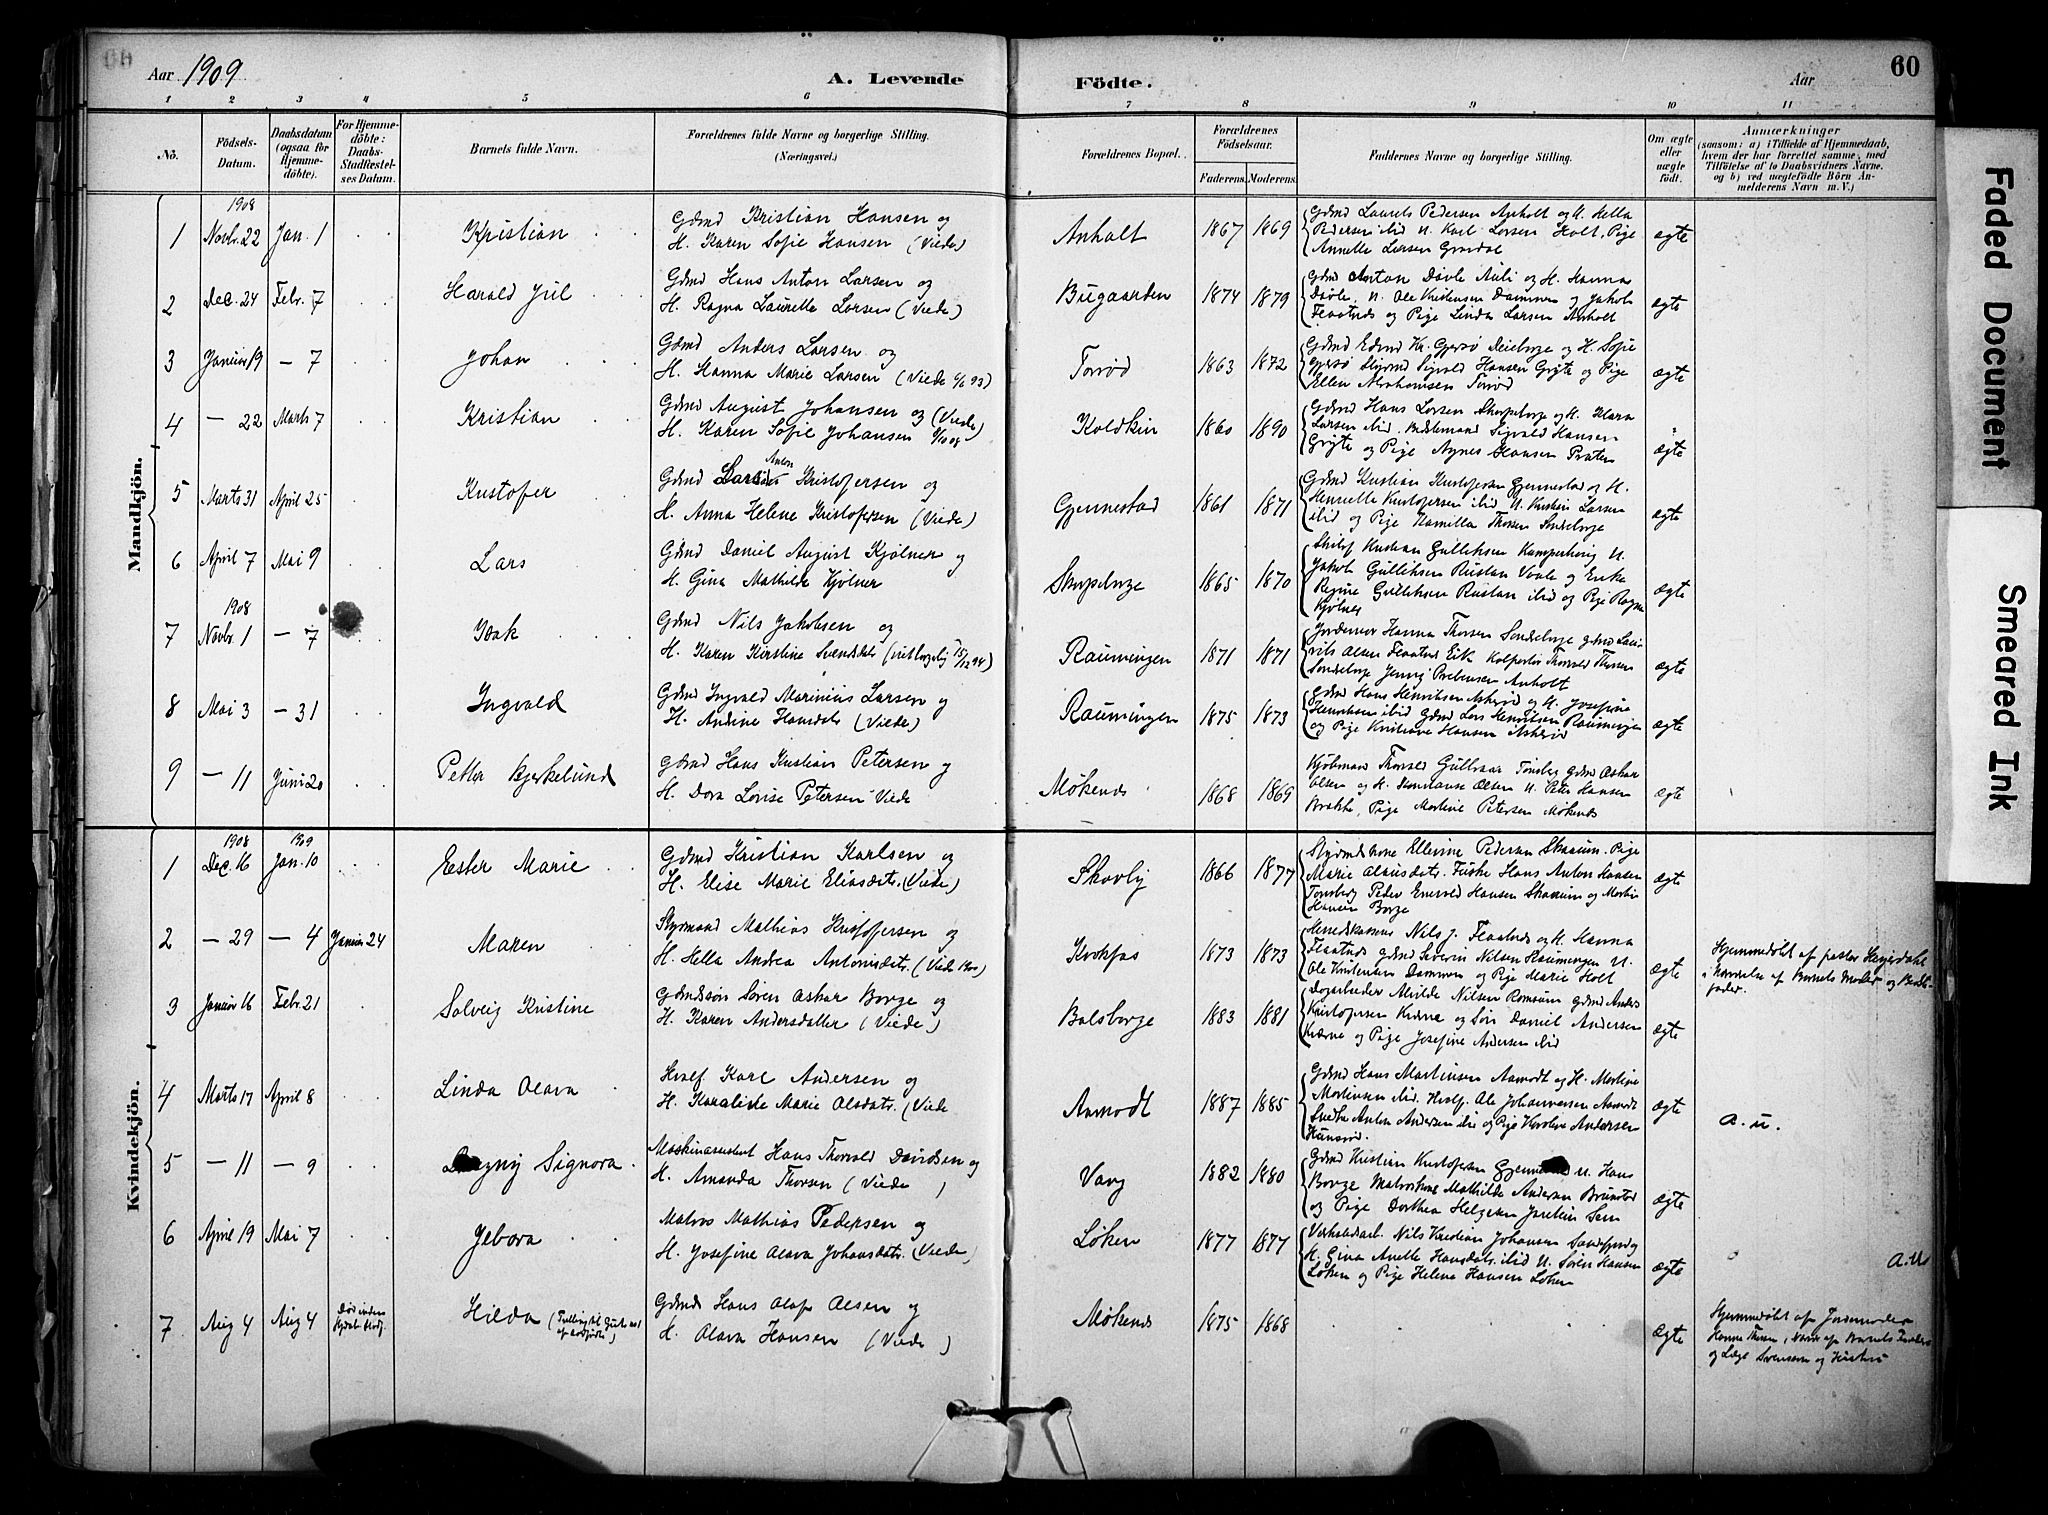 60
Aar 1909
A. Levende Födte.
Aar
60
1 2 3 4 5 6 7 8 9 10 11
Nö.
Födsels-Datum.
Daabsdatum (ogsaa for Hjemmedöbte).
For Hjemmedöbte: Daabs-Stadfæstelses Datum.
Barnets fulde Navn.
Forældrenes fulde Navne og borgerlige Stilling. (Næringsvei.)
Forældrenes Bopæl.
Forældrenes Födselsaar.
Faderens. Moderens.
Faddernes Navne og borgerlige Stilling.
Om ægte eller uægte født.
Anmærkninger
(saasom: a) i Tilfælde af Hjemmedaab, hvem der har forrettet samme, med Tilföielse af to Daabsvidners Navne, og b) ved uægtefödte Börn Anmelderens Navn m. V.)
Mandkjön.
1908
1 Novbr. 22 Jan. 1 Kristian
Gdmd Kristian Hansen og
H. Karen Sofie Hansen (Viede)
Anholt 1867 1869
Gdmd Laurits Pedersen Anholt og H. Hella
Pedersen ibid U. Karl Larsen Holt, Pige
Annette Larsen
ægte
2 Dec. 24 Febr. 7 Harald Jul
Gdmd Hans Anton Larsen og
H. Ragna Laurette Larsen (Viede)
Bugaarden 1874 1879
Gdmd Anton Døvle Auli og H. Hanna
Døvle, U. Ole Kristensen Dammen og Jakob
Flaatnds og Pige Linda Larsen Anholt
ægte
3 Januar 19 — 7 Johan
Gdmd Anders Larsen og
H. Hanna Marie Larsen (Viede 93)
Torrød 1863 1872
Gdmd Edvard Kr. Gjersø og H. Sofie
Gjersø Sigvald Hansen Grøte og Pige
Ellen Abrahamsen Torrød
ægte
4 — 22 Marts 7 Kristian
Gdmd August Johansen og (Viede
H. Karen Sofie Johansen 08)
Koldkin 1860 1890
Gdmd Hans Larsen og H. Klara
Larsen ibid. Sigvald Hansen
Grøte og Pige Agnes Hansen
ægte
5 Marts 31 April 25 Kristofer
Gdmd Anton Kristofersen og
H. Anna Helene Kristofersen (Viede)
Gjennestad 1861 1871
Gdmd Kristian Kristofersen Gjennestad og H.
Henriette Kristofersen ibid U. Kristian Larsen
ibid og Pige Kamilla Thorsen
ægte
6 April 7 Mai 9 Lars
Gdmd Daniel August Kjølner og
H. Gina Mathilde Kjølner
1865 1870
Gulliksen U.
Jakob Gulliksen Rustan Vaale og Enke
Regine Gulliksen Rustan ibid og Pige Ragna
Kjølner
ægte
1908
7 Novbr. 1 — 7 Isak
Gdmd Nils Jakobsen og
H. Karen Kirstine Svendsdtr 15/12 94)
Raumingen 1871 1871
Jordemor Hanna Thorsen
Olsen Eik Thorvald Thorsen
Anholt
ægte
8 Mai 3 — 31 Ingvald
Gdmd Ingvald Marinius Larsen og
H. Andine Hansdatr (Viede)
Raumingen 1875 1873
Gdmd Hans Henriksen Askjerød og H. Josefine
Henriksen ibid Gdmd Lars Henriksen Raumingen
og Pige Kristiane Hansen Askjerød
ægte
9 — 11 Juni 20 Petter Bjerkelund
Gdmd Hans Kristian Petersen og
H. Dora Lovise Petersen Viede
Møkenes 1868 1869
Kjøbmand Thorvald Tønsberg Gdmd Oskar
Olsen og H. Konstanse Olsen U. Peter Hansen
Pige Martine Petersen Møkenes
ægte
Kvindekjön.
1908 1909
1 Dec. 16 Jan. 10 Ester Marie
Gdmd Kristian Karlsen og
H. Elise Marie Eliasdatr. (Viede)
Skovly 1866 1877
Ellevine Pedersen Skaaum. Pige
Marie Hans Anton Hansen
Tønsberg Peder Enevold Hansen Skaaum og Martin
Hansen Borge
ægte
2 — 29 — 4 Januar 24 Maren
Styrmand Mathias Kristofersen og
H. Hella Andrea Antonisdtr. (Viede 1900)
Krokfos 1873 1873
Herredskasserer Nils J. Flaatnds og H. Hanna
Flaatnds Gdmd Severin Nilsen Raumingen U.
Ole Kristensen Dammen og Pige Marie Holt
ægte
Hjemmedøbt af pastor Heyerdahl
i Nærvelse af Barnets Moder og Bedste-
fader.
3 Januar 16 Febr. 21 Solveig Kristine
Gdmdssøn Søren Oskar Borge og
H. Karen Andersdatter (Viede)
Bolsborge 1883 1881
Nilsen Romsum Gdmd Anders
Kristofersen Kverne og Søn Daniel Andersen
Kverne og Pige Josefine Andersen ibid
ægte
4 Marts 17 April 8 Linda Olava
Karl Andersen og
H. Karoline Marie Olsdatr. (Viede
Aamodt 1887 1885
Gdmd Hans Martinsen Aamodt og H. Martine
Martinsen ibid. Ole Johannessen Aamodt
Snedker Anton Andersen ibid og Pige Karoline Andersen
ægte
A. U.
5 — 11 — 9 Dagny Signora
Maskinassistent Hans Thorvald Davidsen og
H. Amanda Thorsen (Viede )
Vang 1882 1880
Gdmd Kristian Kristofersen U. Hans
Borge Matroskone Mathilde Andersen
og Pige Dorthea Helgesen Sem
ægte
6 April 19 Mai 7 Jebora
Matros Mathias Pedersen og
H. Josefine Olava Johansdatr. (Viede)
Løken 1877 1877
Nils Kristian Johansen Sandefjord og
H. Gina Anette Hansdatr. ibid U. Søren Hansen
Løken og Pige Helena Hansen Løken
ægte
A. U
7 Aug 4 Aug 4 Hilda
Gdmd Hans Olaf Olsen og
H. Olava Hansen (Viede )
Møkenes 1875 1868
ægte
Hjemmedøbt af Jordemoder
Hanna Thorsen, af Barnets Fader
og Læge Svensen og Hustru
Faded Document
Smeared Ink